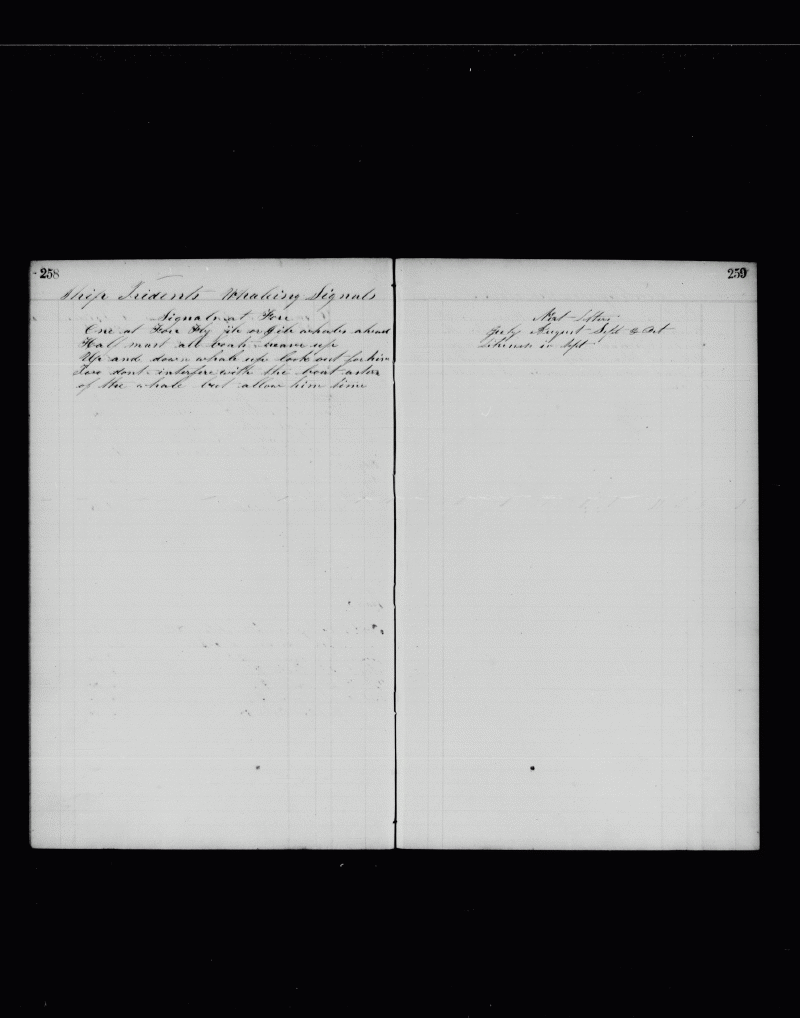 258
Ship Tridents Whaling Signals
Signals at Fore
One at Fore Fly jib or Gib whales ahead
Half mast all boats up
Up and down whale up look out for him
Two dont interfere with the boat
of the whale but allow him time
259
July August Sept & Oct
in Sept